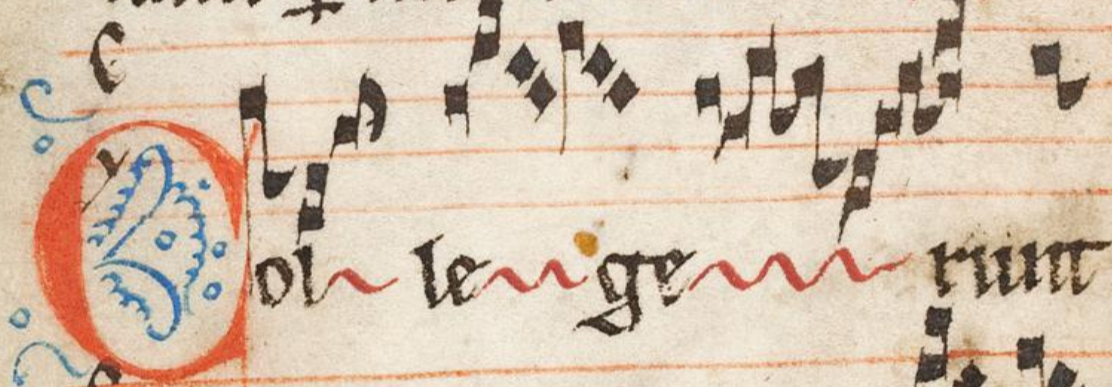 Col le ge runt